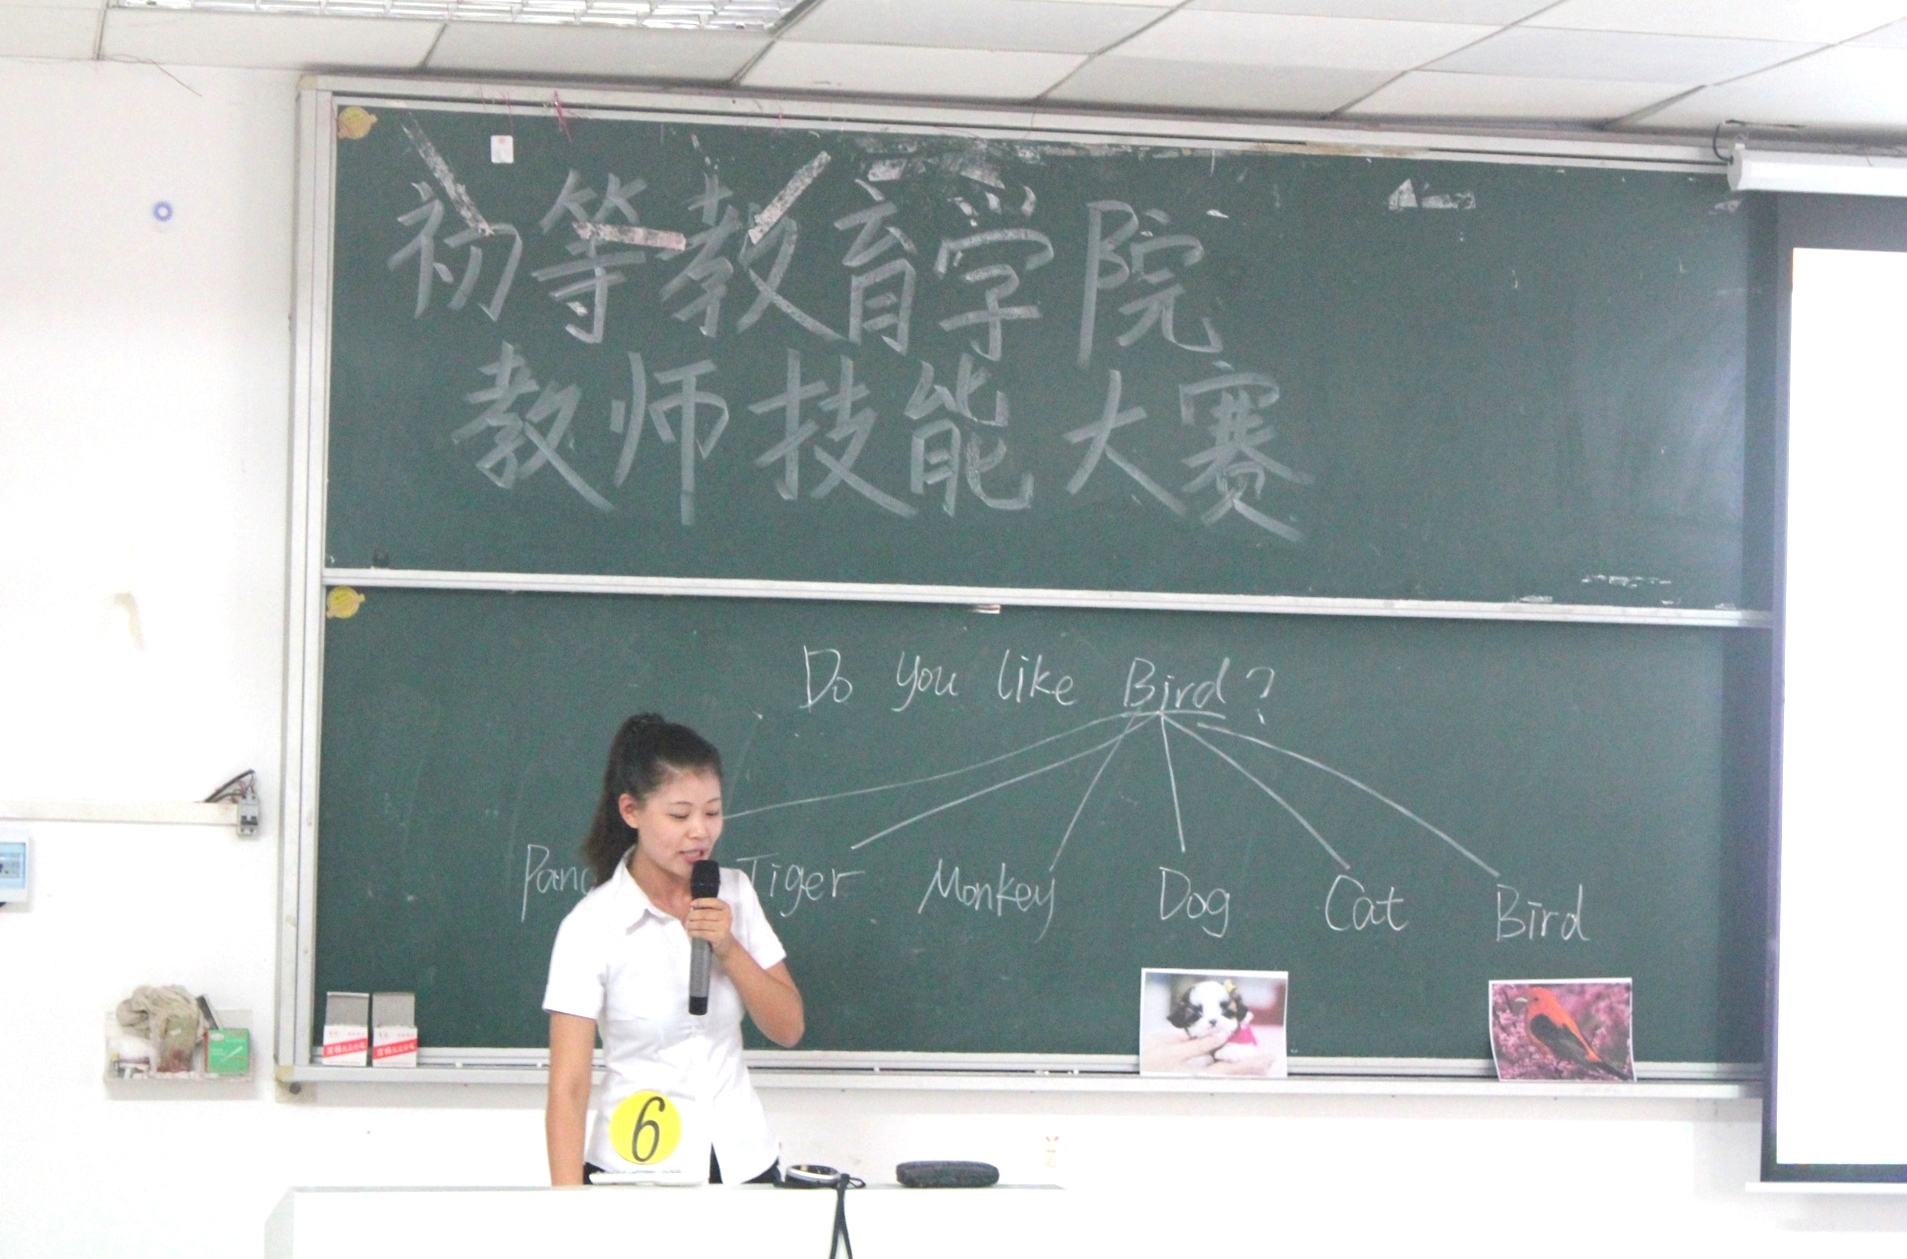 初等教育学院
教师技能大赛
Do you like Bird?
Tiger Monkey Dog Cat Bird
6